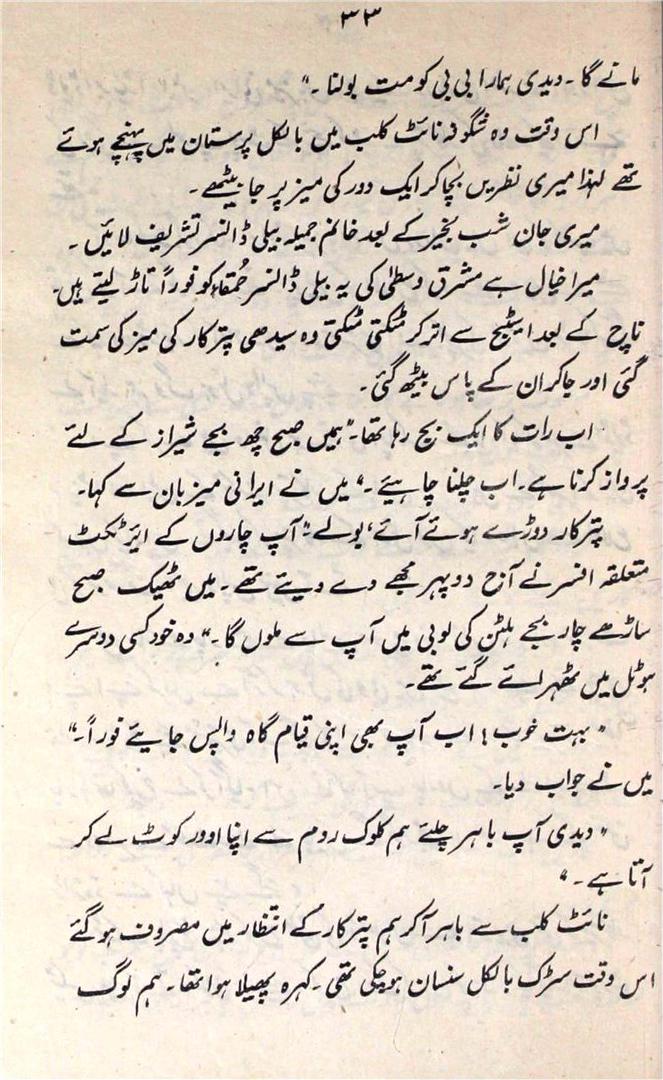 ۳۳
مانے گا۔ دیدی ہمارا بی بی کو مت بولنا۔"
اس وقت وہ شگوفہ نائٹ کلب میں بالکل پرستان میں پہنچے ہوئے
تھے لہٰذا میری نظریں بچا کر ایک دور کی میز پر جا بیٹھے۔
میری جان شب بخیر کے بعد خانم جمیلہ بیلی ڈانسر تشریف لائیں۔
میرا خیال ہے مشرق وسطیٰ کی یہ بیلی ڈانسر حُمقاء کو فوراً تاڑ لیتے ہیں۔
ناچ کے بعد اسٹیج سے اتر کر مٹکتی مٹکتی وہ سیدھی پترکار کی میز کی سمت
گئی اور جا کر ان کے پاس بیٹھ گئی۔
اب رات کا ایک بج رہا تھا۔ "ہمیں صبح چھ بجے شیراز کے لئے
پرواز کرنا ہے۔ اب چلنا چاہیئے۔" میں نے ایرانی میزبان سے کہا۔
پترکار دوڑے ہوئے آئے، بولے۔ "آپ چاروں کے ایر ٹکٹ
متعلقہ افسر نے آج دوپہر مجھے دے دیئے تھے۔ میں ٹھیک صبح
ساڑھے چار بجے ہلٹن کی لوبی میں آپ سے ملوں گا۔" وہ خود کسی دوسرے
ہوٹل میں ٹھہرائے گئے تھے۔
"بہت خوب! اب آپ بھی اپنی قیام گاہ واپس جایئے فوراً۔"
میں نے جواب دیا۔
"دیدی آپ باہر چلئے ہم کلوک روم سے اپنا اوور کوٹ لے کر
آتا ہے۔"
نائٹ کلب سے باہر آکر ہم پترکار کے انتظار میں مصروف ہو گئے
اس وقت سڑک بالکل سنسان ہو چکی تھی۔ کہرہ پھیلا ہوا تھا۔ ہم لوگ